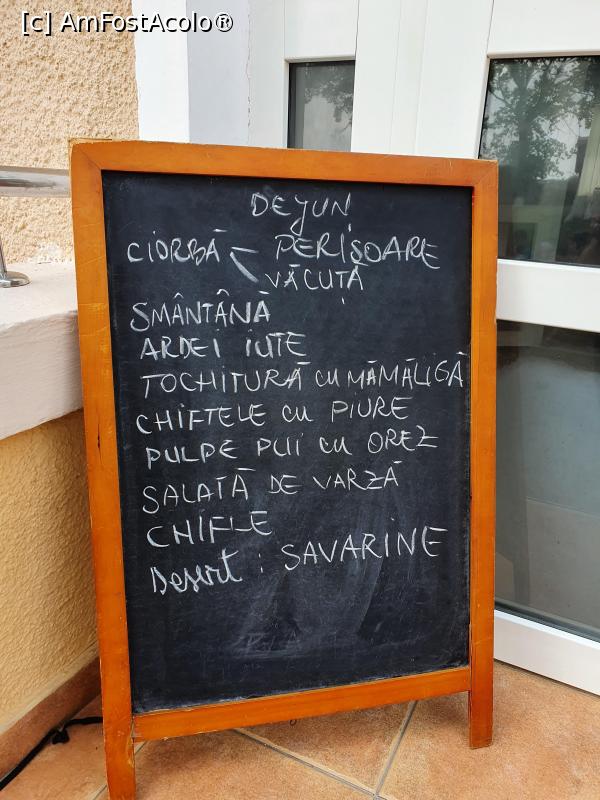 [c] AmFostAcolo®
DEJUN
CIORBĂ PERIȘOARE
VĂCUȚĂ
SMÂNTÂNĂ
ARDEI IUTE
TOCHITURĂ CU MĂMĂLIGĂ
CHIFTELE CU PIURE
PULPE PUI CU OREZ
SALATĂ DE VARZĂ
CHIFLE
Desert : SAVARINE